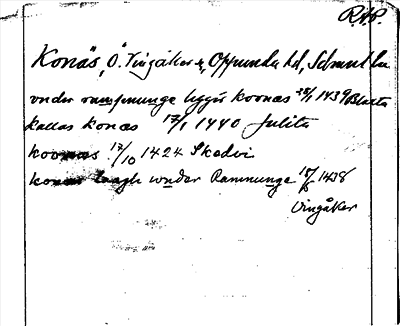 RAP.
Konäs, Ö. Vingåker s, Oppunda hd, Södml. ln
vnder rampnunge ligger koonas 28/1 1439 Blxsta
kallas konas 17/1 1440 Julita
koonas 17/10 1424 Skedvi
konas laagh wnder Ramnunge 15/5 1438
Vingåker